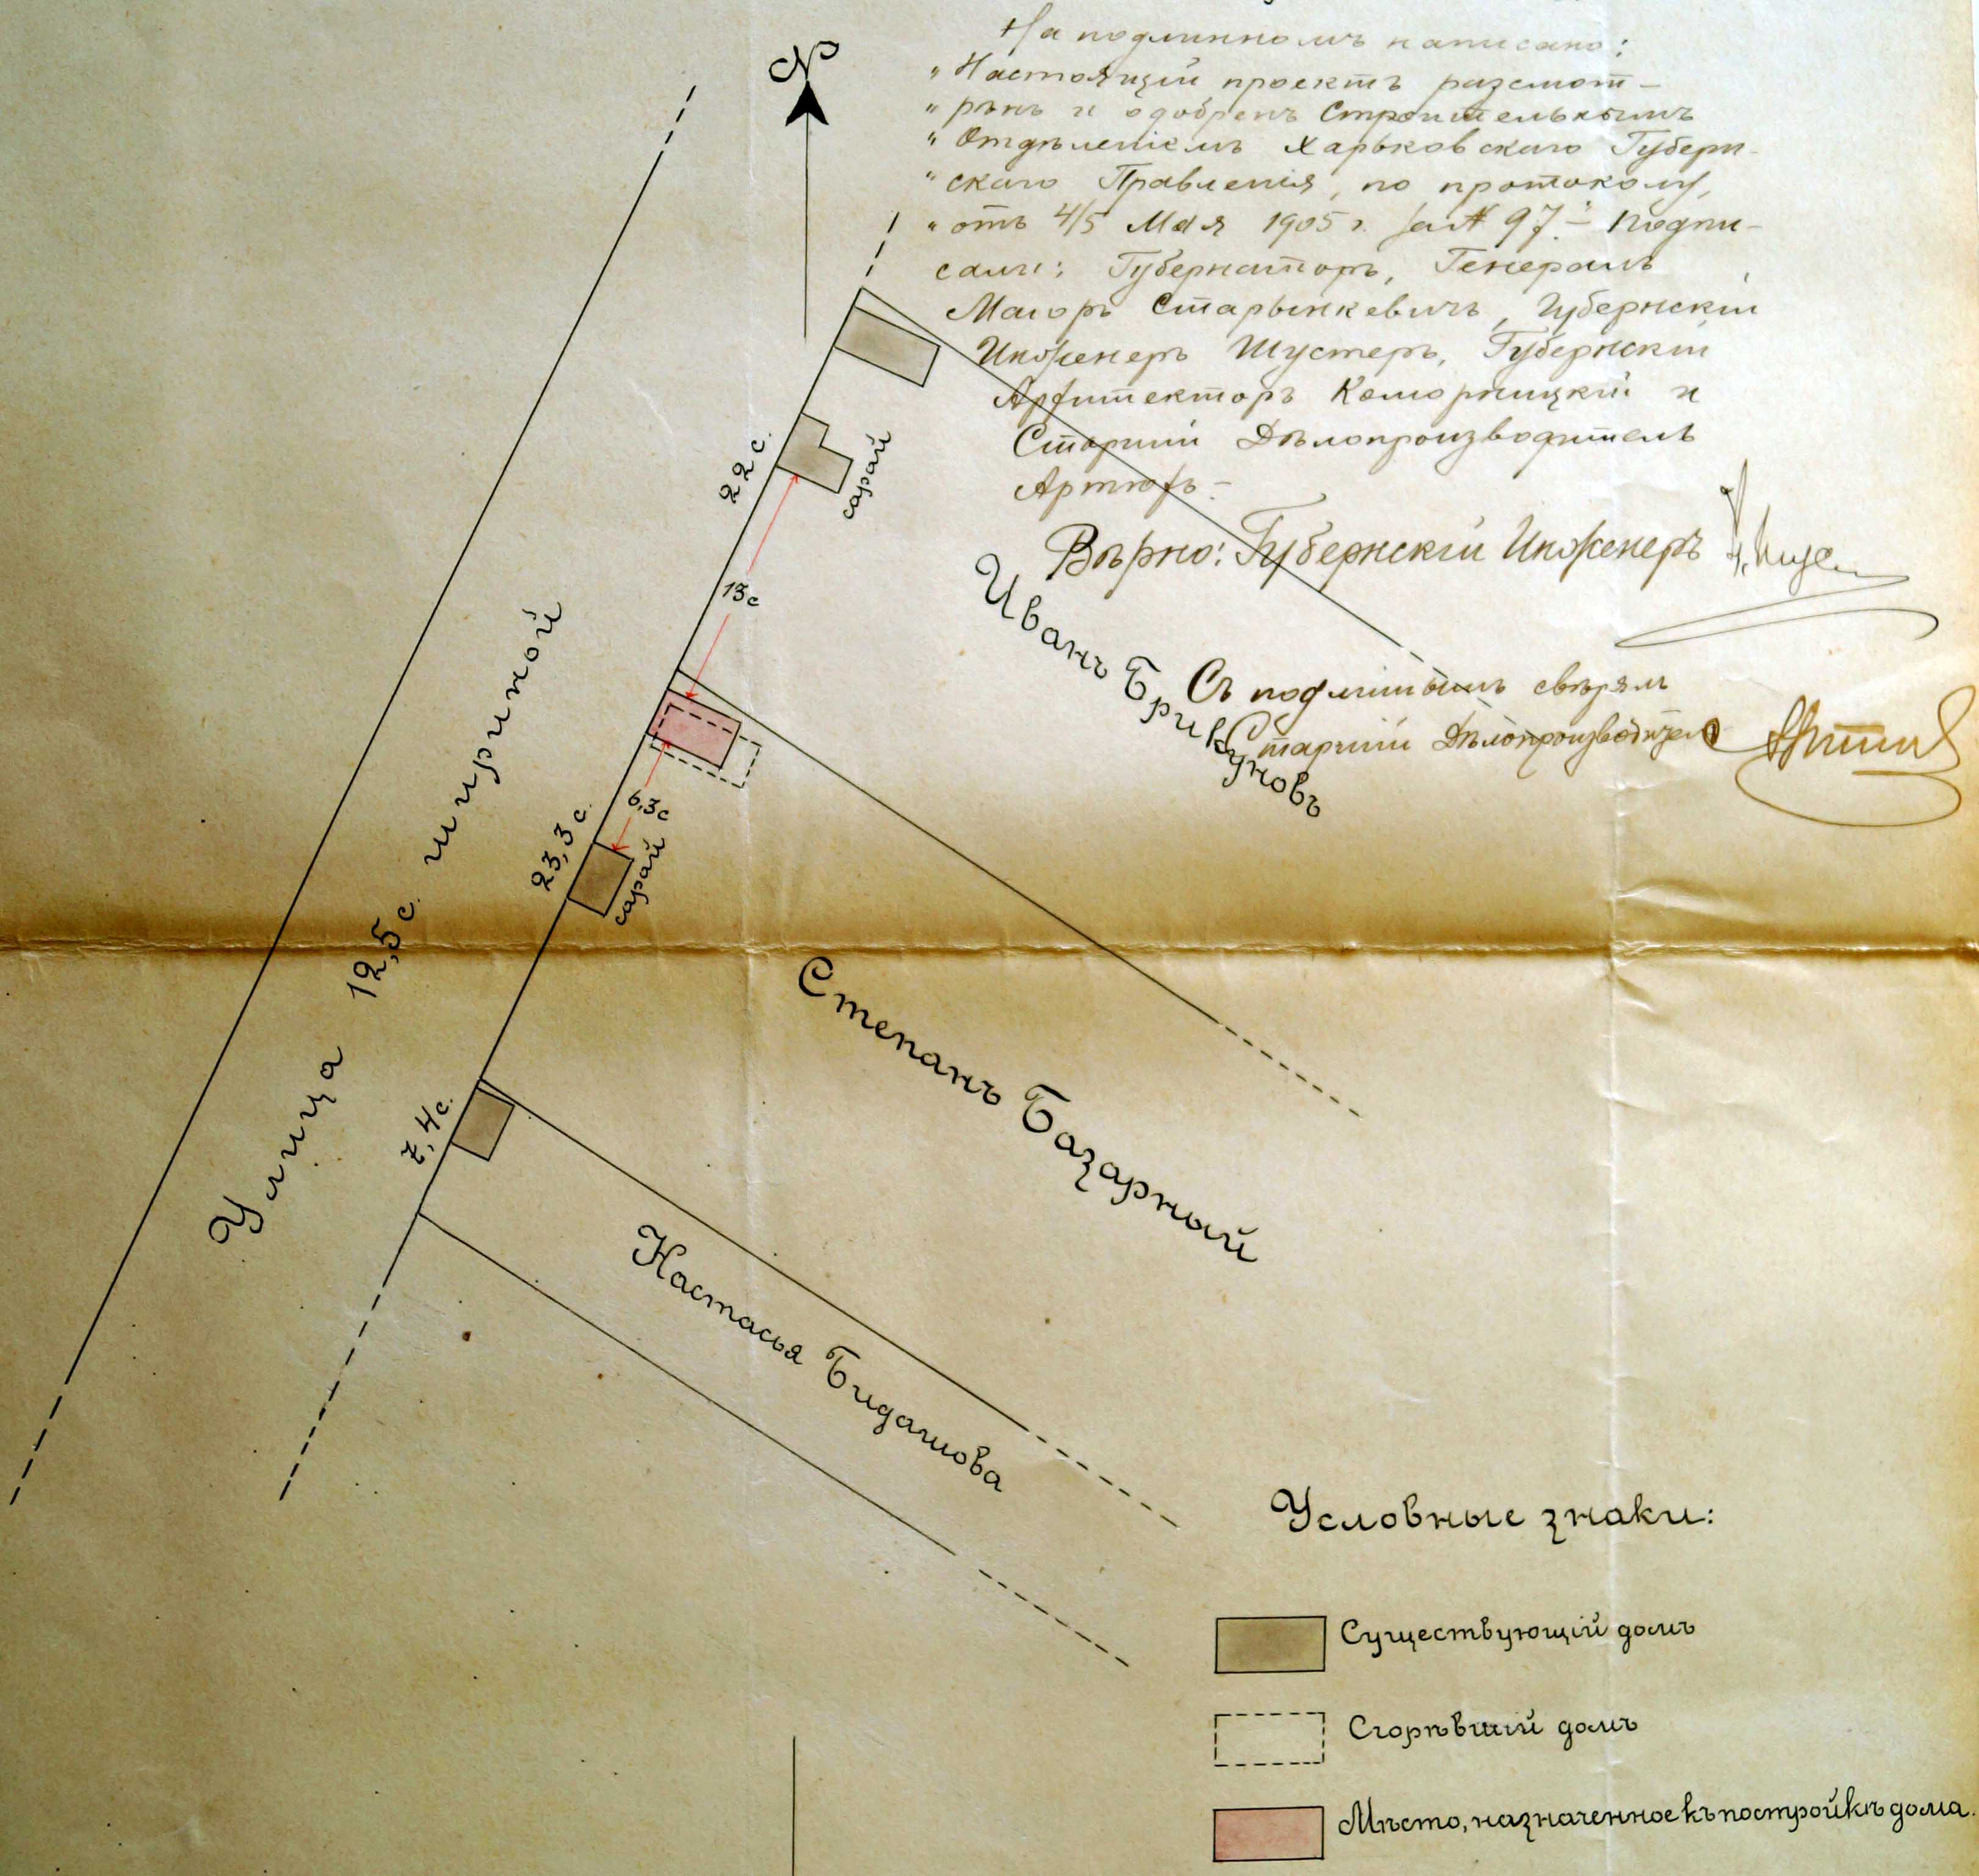 На подлинномъ написано:
"Настоящій проектъ разсмот-
"рѣнъ и одобренъ Строительнымъ
"Отдѣленіемъ Харьковскаго Губерн-
"скаго Правленія, по протоколу,
"отъ 4/5 Мая 1905 г. за № 97." Подпи-
сали: Губернаторъ, Генералъ
Маіоръ Старынкевичъ, Губернскій
Инженеръ Шустеръ, Губернскій
Архитекторъ Коморницкій и
Старшій Дѣлопроизводитель
Артюхъ.-
Вѣрно: Губернскій Инженеръ
Съ подлиннымъ свѣрялъ
Старшій Дѣлопроизводитель
N
22 с.
сарай
13 с
Иванъ Брикуновъ
6,3 с
23,3 с.
сарай
Улица 12,5 с. шириной
Степанъ Базарный
7,4 с.
Настасья Бидашова
Условные знаки:
Существующій домъ
Сгорѣвшій домъ
Мѣсто, назначенное къ постройкѣ дома.